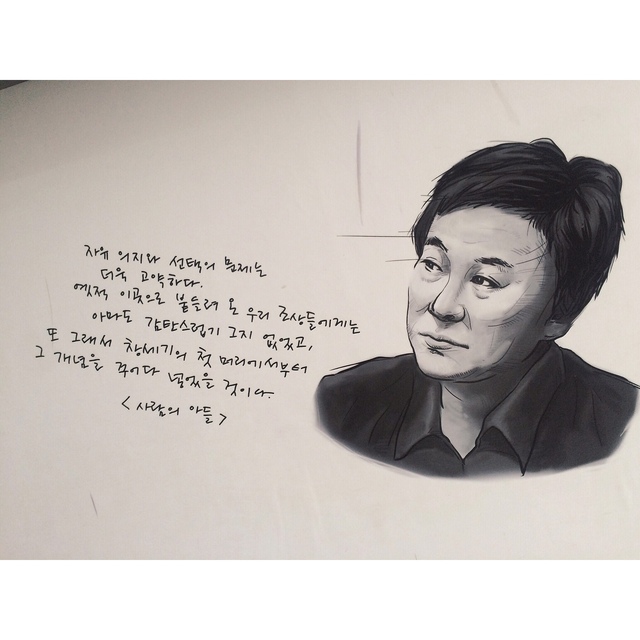 자유 의지와 선택의 문제는
더욱 고약하다.
옛적 이곳으로 붙들려 온 우리 조상들에게는
아마도 감탄스럽기 그지 없었고,
또 그래서 창세기의 첫 머리에서부터
그 개념을 끌어다 넣었을 것이다.
<사람의 아들>